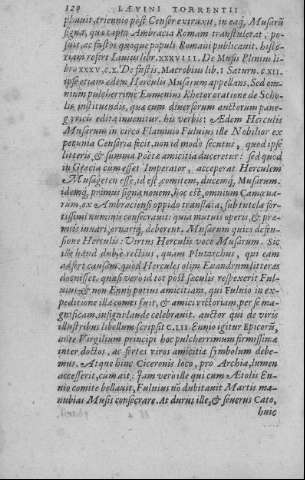 124 LAEVINI TORRENTII
plauit, triennio post Censor vixit, in eaq́, Musarū
signa, quae capta Ambracia Romam transtulerat, po-
suit, ac fastos quoque populi Romani publicauit. histo-
riam refert Liuius lib. XXXVIII. De Musis Plinius li-
bro XXXV.C.X. De fastis, Macrobius lib. I Saturn. C.XII.
ipse etiam aedem Herculis Musarum appellans. Sed om-
nium pulcherrime Eumenius Rhetor oratione de Scho-
lis instituendis, quae cum diuersorum auctorum pane-
gyricis edita inuenitur. his verbis: AEdem Herculis
Musarum in circo Flaminio Fuluius ille Nobilior ex
pecunia Censoria fecit, non id modo secutus, quod ipse
litteris, & summa Poëtae amicitia duceretur: sed quod
in Graecia cum esset Imperator, acceperat Herculem
Musagetem esse, id est, comitem, ducemq́, Musarum.
idemq́, primus signa nouem, hoc est, omnium Camoena-
rum, ex Ambraciensi oppido translata, sub tutela for-
tissimi numinis consecrauit: quia mutuis operis, & prae-
miis iuuari, ornariq́, deberent. Musarum quies defen-
sione Herculis: Virtus Herculis voce Musarum. Sic
ille haud dubie rectius, quam Plutarchus, qui eam
adfert causam, quod Hercules olim Euandrum litteras
docuisset. quasi vero id tot post saeculis respexerit Ful-
uius & non Ennij potius amicitiam, qui Fuluio in ex-
peditione illa comes fuit, & amici victoriam, per se ma-
gnificam, insigni laude celebrauit. auctor qui de viris
illustribus libellum scripsit C.LII. Ennio igitur Epicorū,
ante Virgilium principi hoc pulcherrimum firmissimae
inter doctos, ac fortes viros amicitiae symbolum debe-
mus. Atque huic Ciceronis loco, pro Archia, lumen
accesserit, cum ait: Iam vero ille qui cum AEtolis En-
nio comite bellauit, Fuluius nō dubitauit Martis ma-
nubias Musis consecrare. At durus ille, & seuerus Cato,
huic